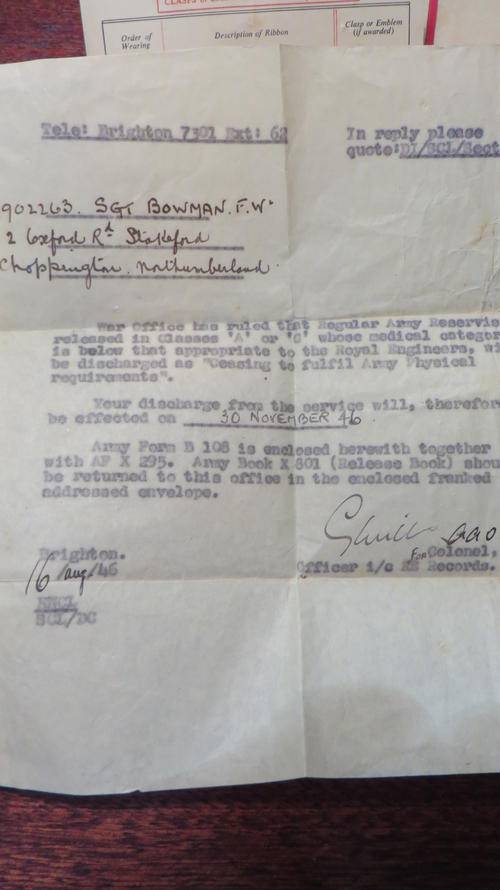 CLASPS
Order of Wearing
Description of Ribbon
Clasp or Emblem (if awarded)
Tele: Brighton 7301 Ext: 62
In reply please
quote:DI/SCL/Sect
902263. SGT BOWMAN. F.W.
2 Oxford Rd Stakeford
Choppington. Northumberland.
War Office has ruled that Regular Army Reservis
released in Classes 'A' or 'C' whose medical categor
is below that appropriate to the Royal Engineers, wi
be discharged as "Ceasing to fulfil Army Physical
requirements".
Your discharge from the service will, therefor
be effected on 30 NOVEMBER 46
Army Form B 108 is enclosed herewith together
with AF X 295. Army Book X 801 (Release Book) shou
be returned to this office in the enclosed franked
addressed envelope.
Brighton.
16/Aug/46
For Colonel,
Officer i/c RE Records.
ENCL
SCL/DC